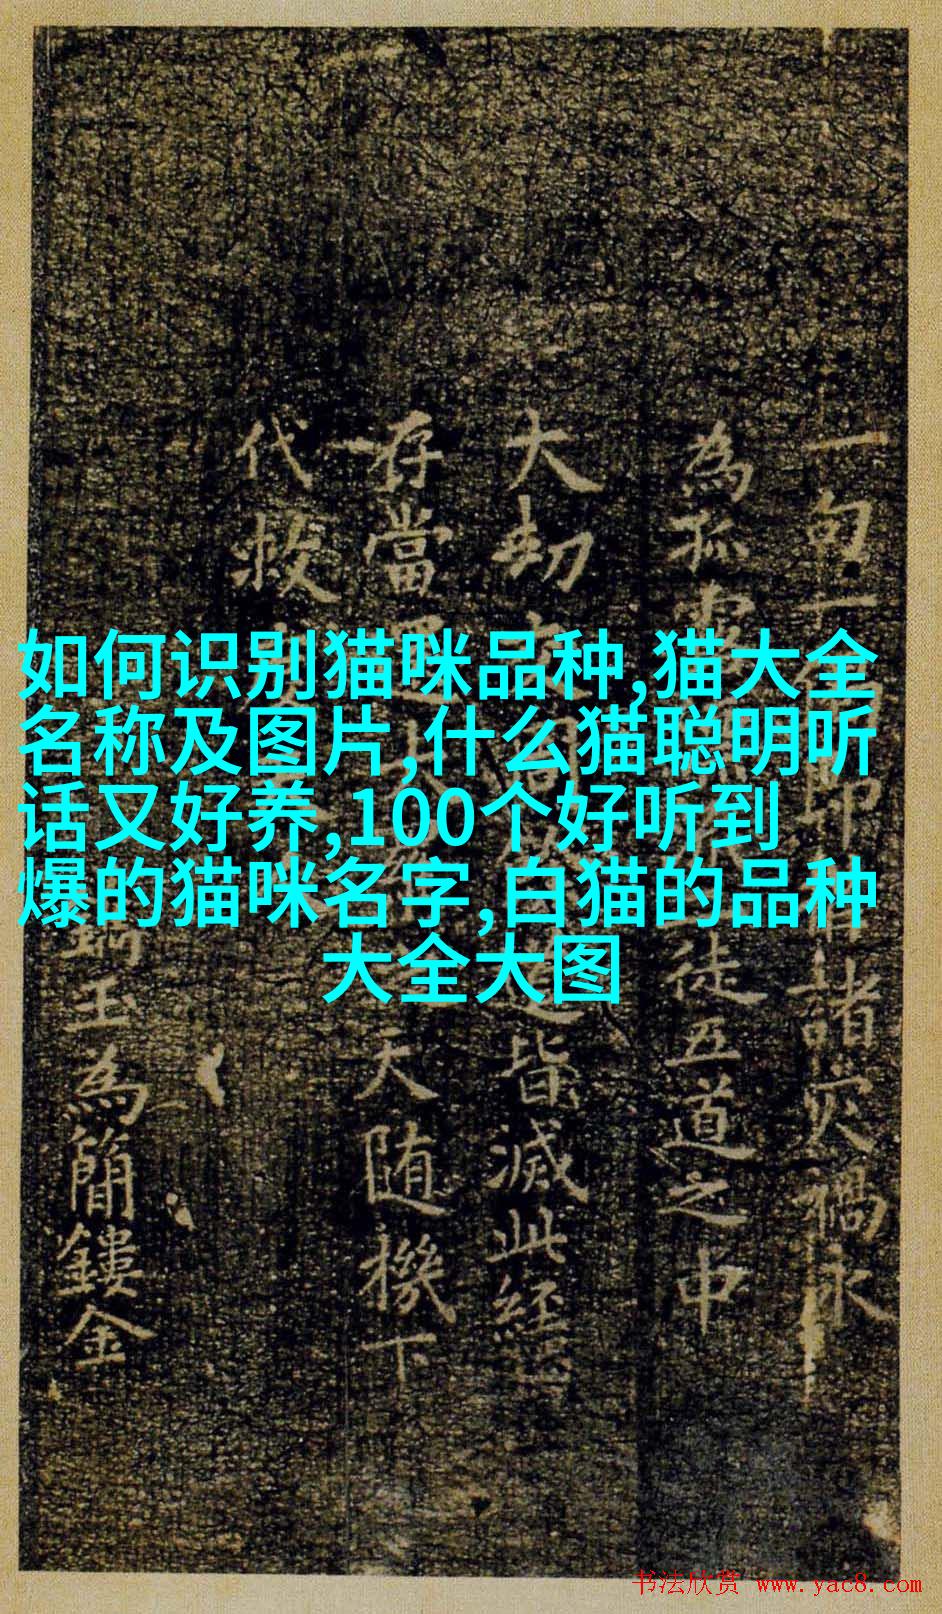 一句一
為孤
徒五道之中
諸灾禍永
大劫
皆滅此經
存當
天随機下
代救
玉為簡鏤金
如何识别猫咪品种,猫大全
名称及图片,什么猫聪明听
话又好养,100个好听到
爆的猫咪名字,白猫的品种
大全大图
书法欣赏 www.yac8.com